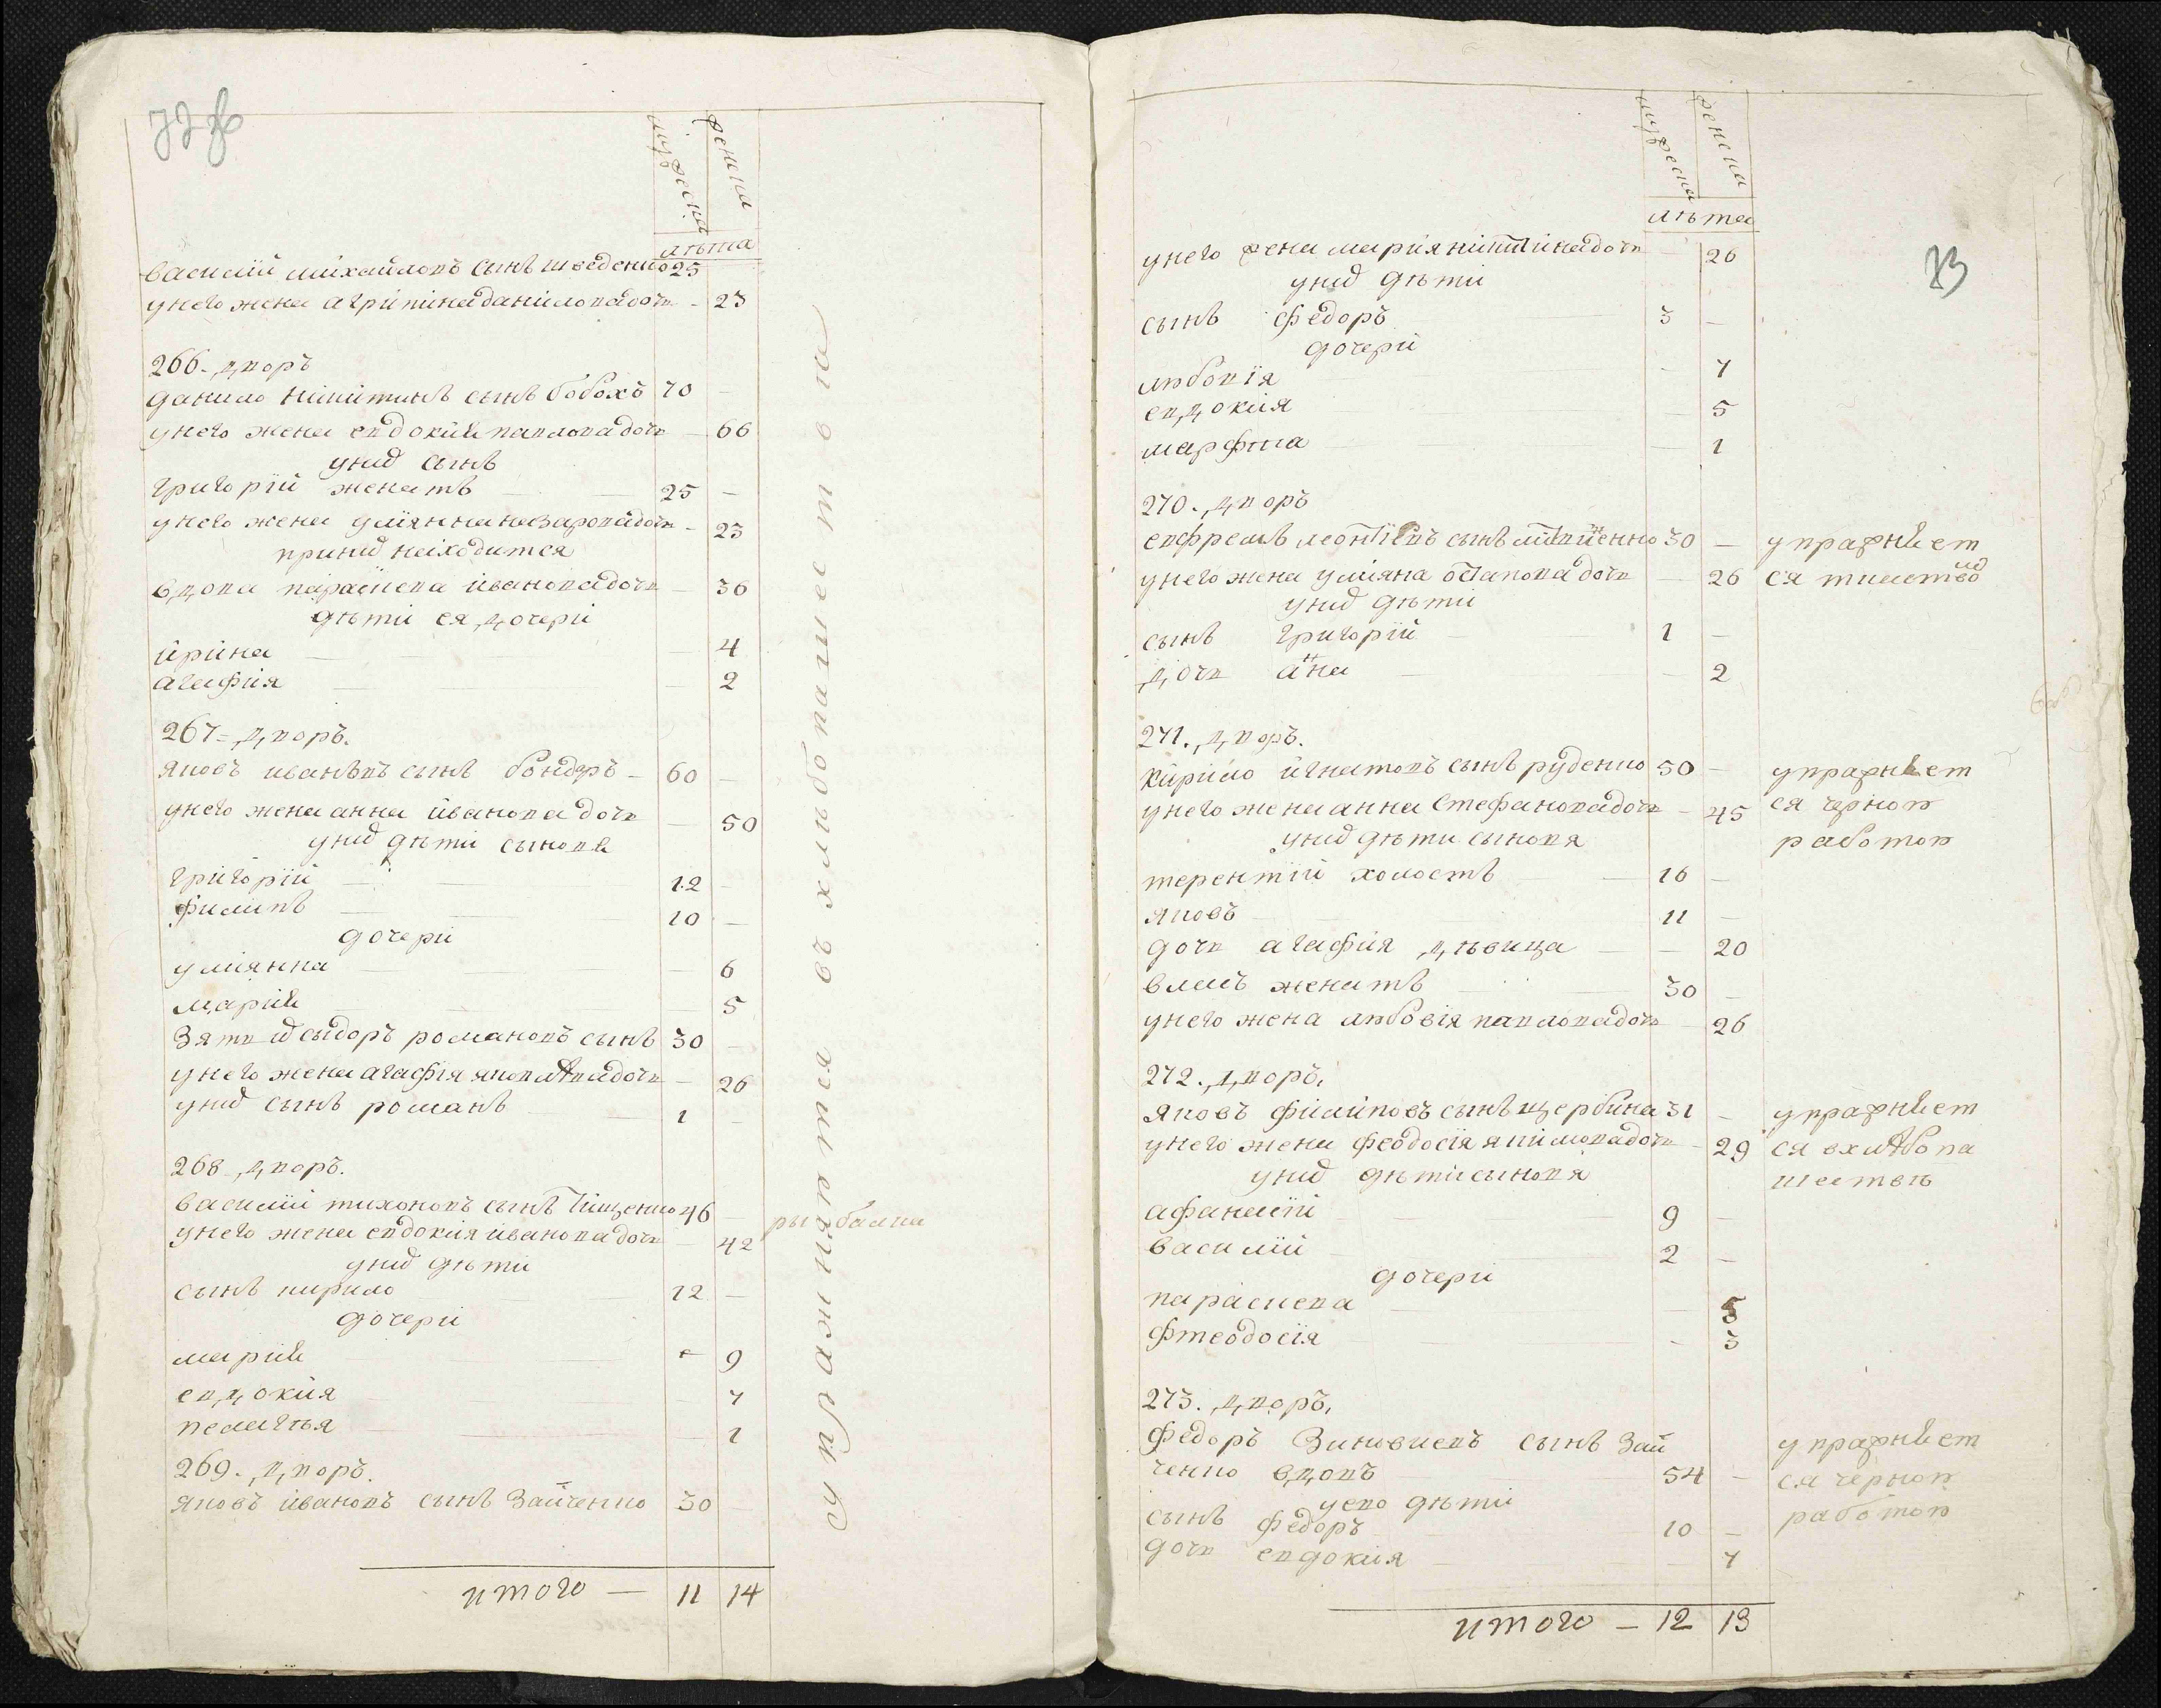 мужеска женска
лѣта
василій михайловъ сынъ шведенко 25
унего жена агрипина данилова дочь - 23
266. дворъ
данило никитинъ сынъ бобохъ 70 -
унего жена евдокия павлова дочь - 66
унихъ сынъ
григорій женатъ 25 -
унего жена улиянна назарова дочь - 23
принихъ находится
вдова параскева иванова дочь - 36
дѣти ея дочери
ирина - 4
агафия - 2
267 = дворъ.
яковъ иванъвъ сынъ бондаръ - 60 -
унего жена анна иванова дочь - 50
унихъ дѣти сыновя
григорій 12 -
филипъ 10 -
дочери
улиянна - 6
мария - 5
Зять ихъ сыдоръ романовъ сынъ 30 -
унего жена агафія яковлѣва дочь - 26
унихъ сынъ романъ 1 -
268 дворъ.
василій тихоновъ сынъ тищенко 46 -
унего жена евдокия иванова дочь - 42
унихъ дѣти
сынъ кирило 12 -
дочери
мария - 9
евдокия - 7
пелагѣя - 1
269. дворъ.
яковъ ивановъ сынъ Зайченко 30 -
итого — 11 14
упражняются въ хлѣбопашествѣ
73
мужеска женска
лѣта
унего жена мария никитина дочь - 26
унихъ дѣти
сынъ федоръ 3 -
дочери
любовія - 7
евдокия - 5
марфта - 1
270. дворъ
евфремъ леонтіевъ сынъ 30 - упражняет
унего жена улияна остапова дочь - 26 ся
унихъ дѣти
сынъ григорій 1 -
дочь анна - 2
271. дворъ.
кирило игнатовъ сынъ руденко 50 - упражняет
унего жена анна стефанова дочь - 45 ся чорною
унихъ дѣти сыновя работою
терентій холостъ 16 -
яковъ 11 -
дочь агафия дѣвица - 20
власъ женатъ 30 -
унего жена любовія павлова дочь - 26
272. дворъ,
яковъ филиповъ сынъ щербина 31 - упражняет
унего жена феодосія якимова дочь - 29 ся вхлѣбопа
унихъ дѣти сыновя шествѣ
афанасій 9 -
василій 2 -
дочери
параскева - 5
фтеодосія - 3
273. дворъ,
федоръ Зиновиевъ сынъ Зай упражняет
ченко вдовъ 54 - ся чорною
уево дѣти работою
сынъ федоръ 10 -
дочь евдокия - 7
итого — 12 13